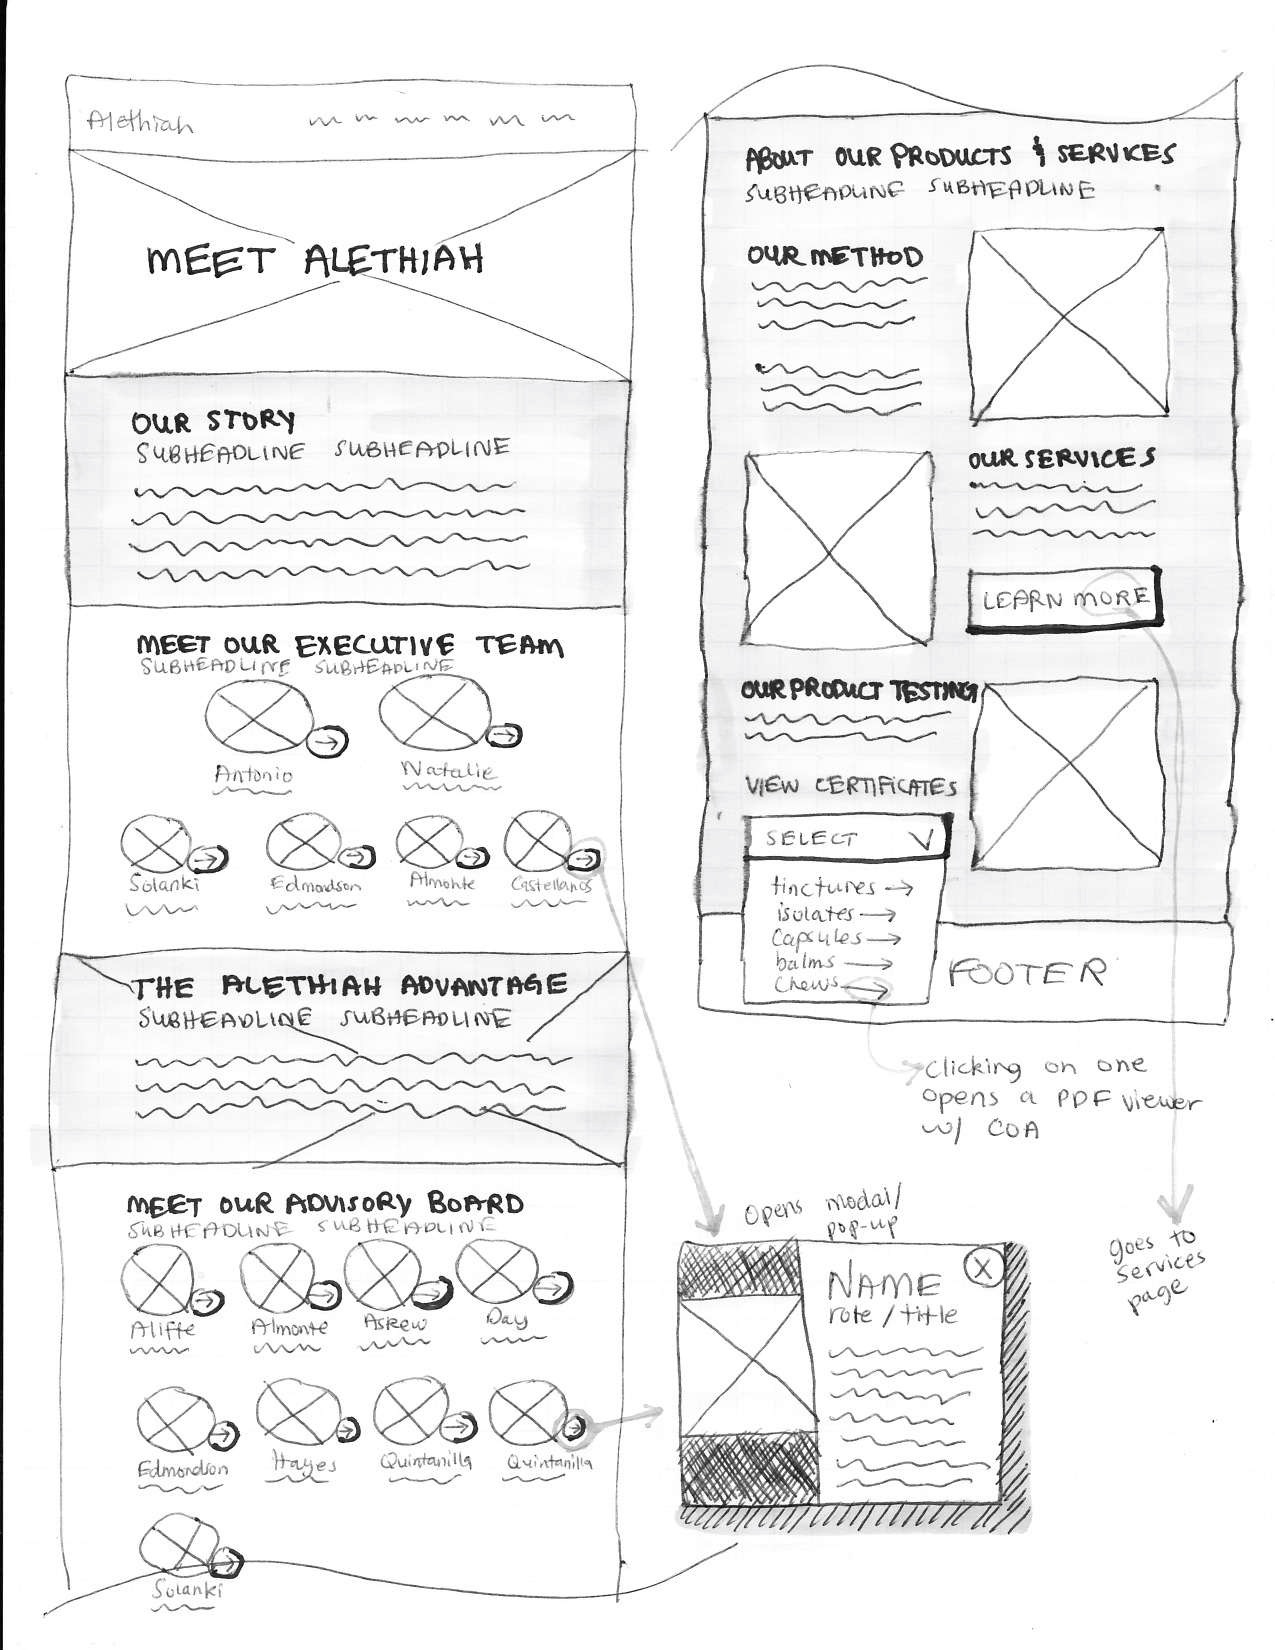 Alethiah
MEET ALETHIAH
OUR STORY
SUBHEADLINE SUBHEADLINE
MEET OUR EXECUTIVE TEAM
SUBHEADLINE SUBHEADLINE
Antonio Natalie
Solanki Edmondson Almonte Castellanos
THE ALETHIAH ADVANTAGE
SUBHEADLINE SUBHEADLINE
MEET OUR ADVISORY BOARD
SUBHEADLINE SUBHEADLINE
Almonte Askew Day
Edmondson Hayes Quintanilla Quintanilla
Solanki
ABOUT OUR PRODUCTS & SERVICES
SUBHEADLINE SUBHEADLINE
OUR METHOD
OUR SERVICES
LEARN MORE
OUR PRODUCT TESTING
VIEW CERTIFICATES
SELECT
tinctures →
isolates →
Capsules →
balms →
Chews →
FOOTER
Clicking on one
opens a PDF viewer
w/ COA
goes to
services
page
Opens modal/
pop-up
NAME
role / title
X